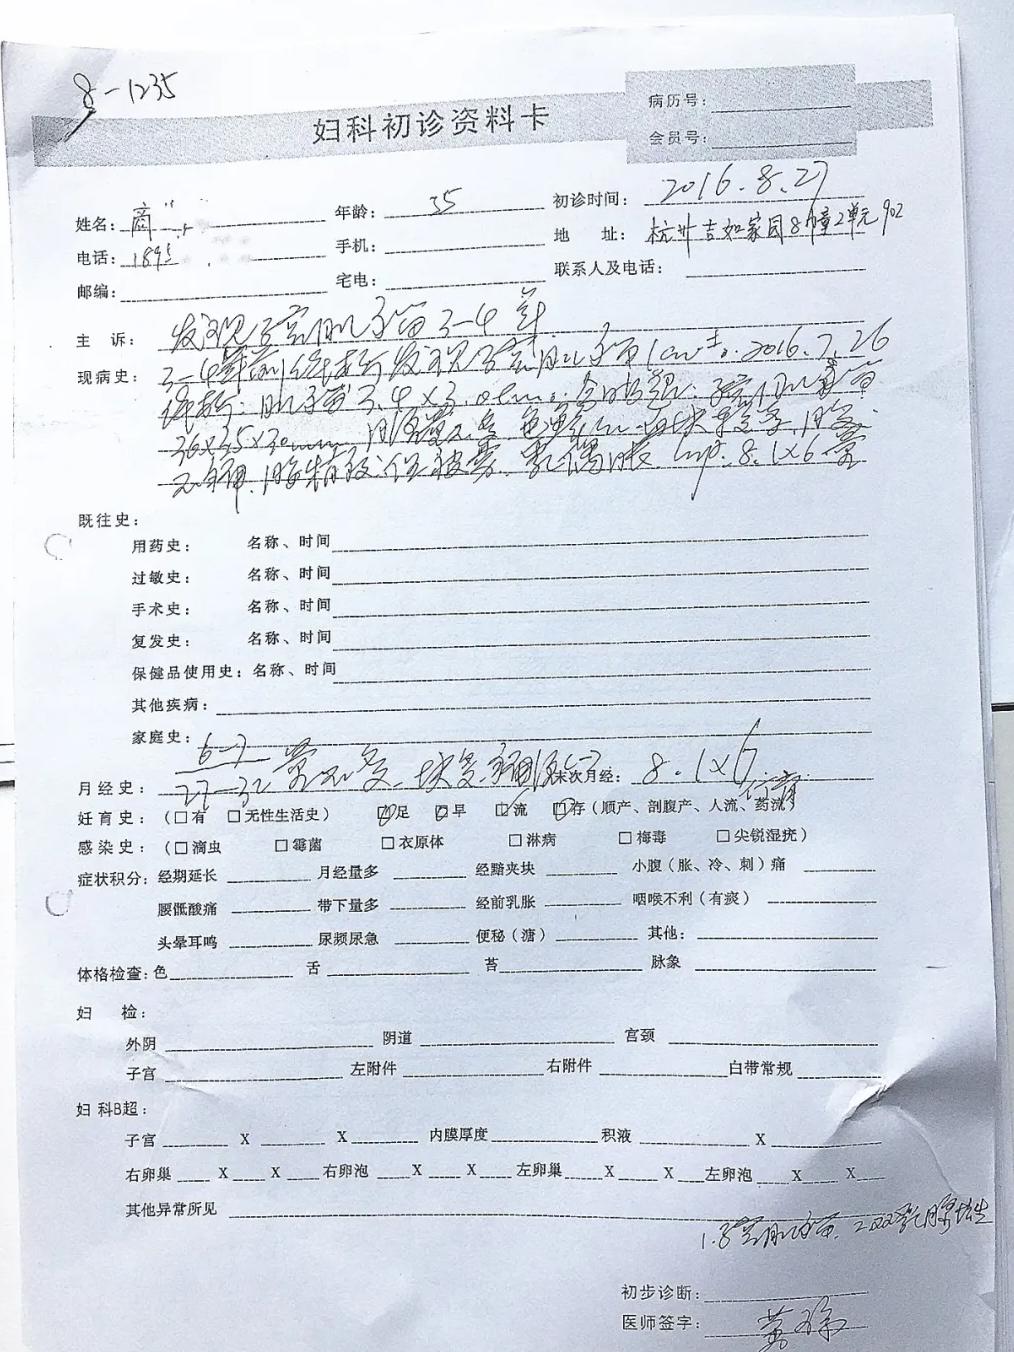 8-1235
妇科初诊资料卡
病历号:
会员号:
姓名: 商 年龄: 35 初诊时间: 2016.8.27
电话: 189 手机: 地 址: 杭州吉如家园8幢2单元902
邮编: 宅电: 联系人及电话:
主 诉: 发现子宫肌瘤3-4年
现病史: 3-4年前体检发现子宫肌瘤1cm±. 2016.7.26
体检: 肌瘤3.4×3.0cm. 今日B超: 子宫肌瘤
36×35×30mm
乳偶胀 Lmp: 8.1×6
既往史:
用药史: 名称、时间
过敏史: 名称、时间
手术史: 名称、时间
复发史: 名称、时间
保健品使用史: 名称、时间
其他疾病:
家庭史:
月经史: 6-7 / 27-32 量不多、块 末次月经: 8.1×6
妊育史: (□有 □无性生活史) ☑足 ☑早 ☑流 ☑存(顺产、剖腹产、人流、药流)
感染史: (□滴虫 □霉菌 □衣原体 □淋病 □梅毒 □尖锐湿疣)
症状积分: 经期延长 月经量多 经黯夹块 小腹(胀、冷、刺)痛
腰骶酸痛 带下量多 经前乳胀 咽喉不利(有痰)
头晕耳鸣 尿频尿急 便秘(溏) 其他:
体格检查: 色 舌 苔 脉象
妇 检:
外阴 阴道 宫颈
子宫 左附件 右附件 白带常规
妇科B超:
子宫 X X 内膜厚度 积液 X
右卵巢 X X 右卵泡 X X 左卵巢 X X 左卵泡 X X
其他异常所见
1.子宫肌瘤. 2.双乳腺增生
初步诊断:
医师签字: